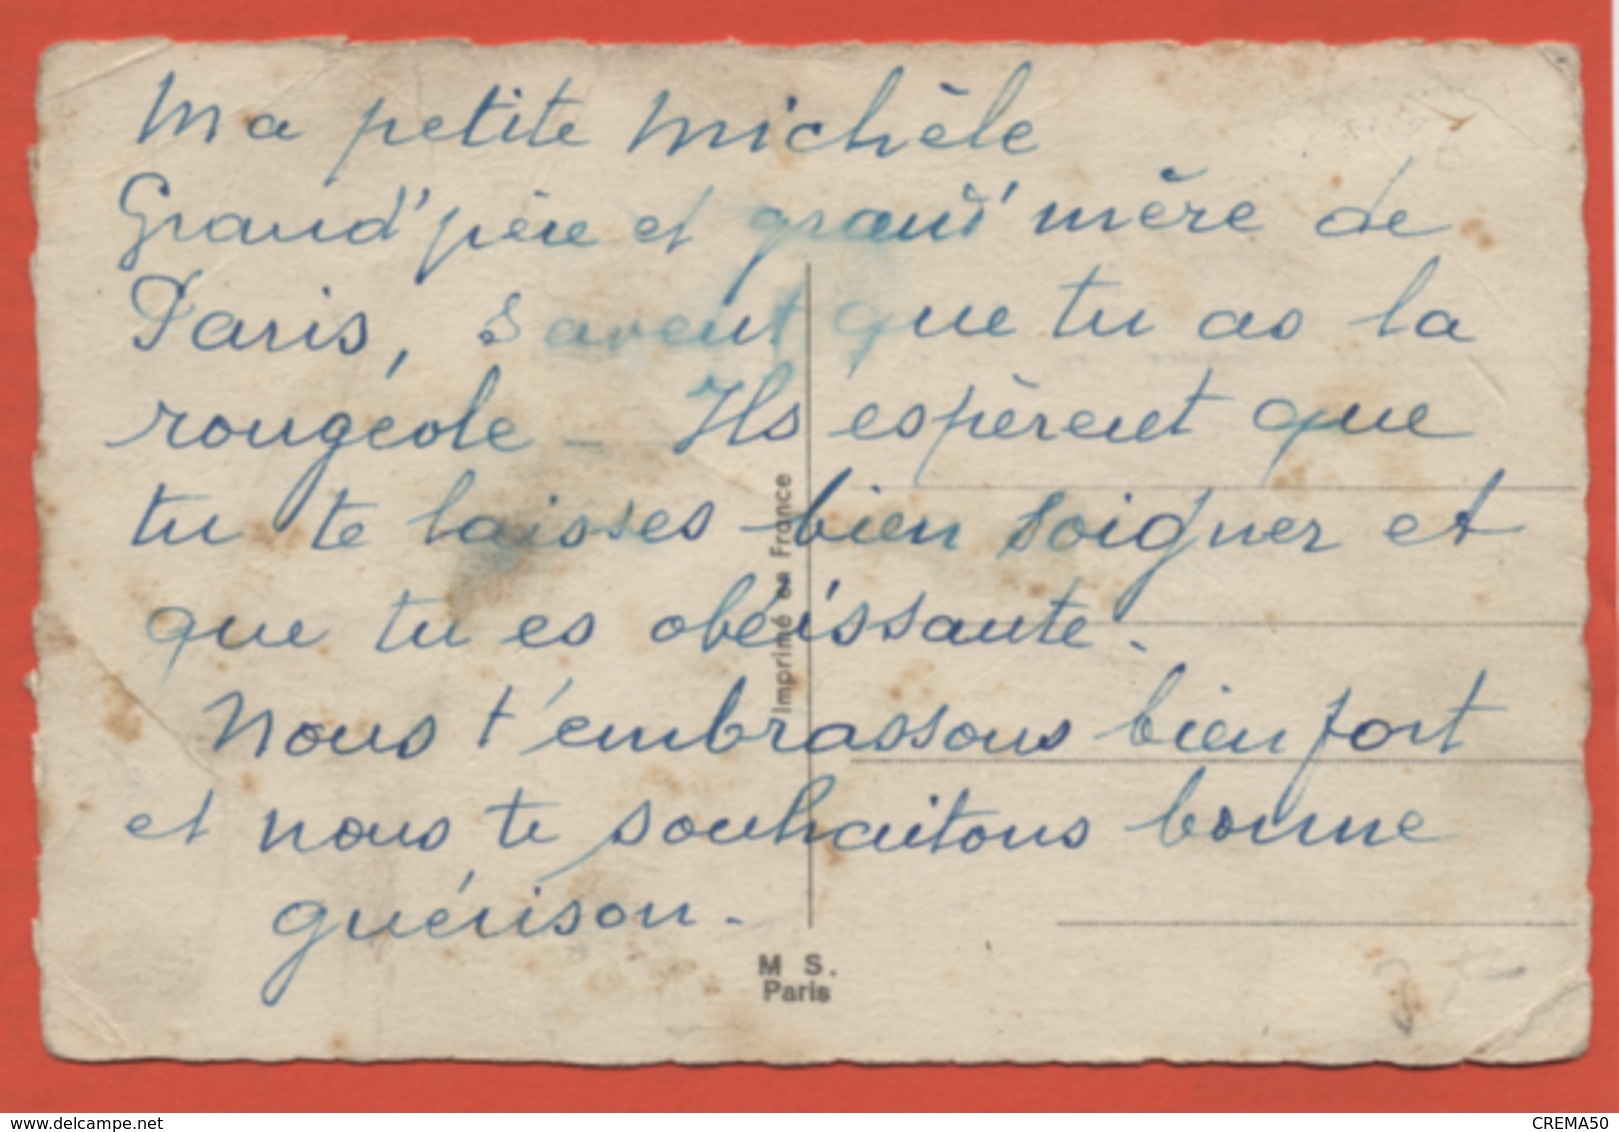 Ma petite Michèle
Grand'père et grand'mère de
Paris, savent que tu as la
rougéole - Ils espèrent que
tu te laisses bien soigner et
que tu es obéissante.
Nous t'embrassons bien fort
et nous te souhaitons bonne
guérison.
Imprimé en France
M S.
Paris
delcampe.net
CREMA50